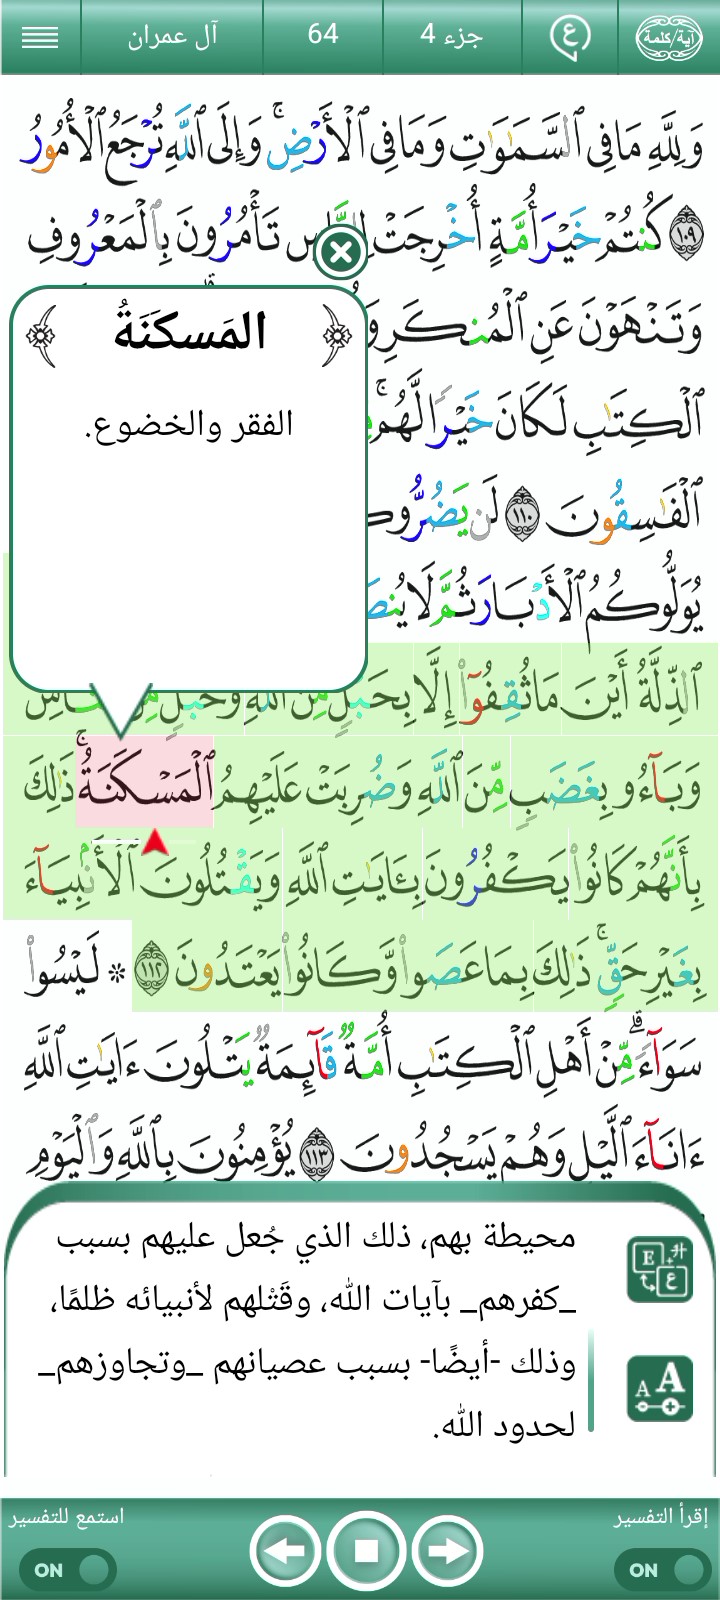 آية/كلمة
ع
جزء 4
64
آل عمران
وَلِلَّهِ مَا فِى ٱلسَّمَٰوَٰتِ وَمَا فِى ٱلْأَرْضِ ۚ وَإِلَى ٱللَّهِ تُرْجَعُ ٱلْأُمُورُ
١٠٩ كُنتُمْ خَيْرَ أُمَّةٍ أُخْرِجَتْ تَأْمُرُونَ بِٱلْمَعْرُوفِ
وَتَنْهَوْنَ عَنِ ٱلْمُنكَرِ
ٱلْكِتَٰبِ لَكَانَ خَيْرًا لَّهُم ۚ
ٱلْفَٰسِقُونَ ١١٠ لَن
يُوَلُّوكُمُ ٱلْأَدْبَارَ ثُمَّ لَا
المَسكَنَةُ
الفقر والخضوع.
ٱلذِّلَّةُ أَيْنَ مَا ثُقِفُوٓا۟ إِلَّا بِحَبْلٍ مِّنَ ٱللَّهِ وَحَبْلٍ
وَبَآءُو بِغَضَبٍ مِّنَ ٱللَّهِ وَضُرِبَتْ عَلَيْهِمُ ٱلْمَسْكَنَةُ ۚ ذَٰلِكَ
بِأَنَّهُمْ كَانُوا۟ يَكْفُرُونَ بِـَٔايَٰتِ ٱللَّهِ وَيَقْتُلُونَ ٱلْأَنۢبِيَآءَ
بِغَيْرِ حَقٍّ ۚ ذَٰلِكَ بِمَا عَصَوا۟ وَّكَانُوا۟ يَعْتَدُونَ ١١٢ * لَيْسُوا۟
سَوَآءً ۗ مِّنْ أَهْلِ ٱلْكِتَٰبِ أُمَّةٌ قَآئِمَةٌ يَتْلُونَ ءَايَٰتِ ٱللَّهِ
ءَانَآءَ ٱلَّيْلِ وَهُمْ يَسْجُدُونَ ١١٣ يُؤْمِنُونَ بِٱللَّهِ وَٱلْيَوْمِ
محيطة بهم، ذلك الذي جُعل عليهم بسبب
_كفرهم_ بآيات الله، وقَتْلهم لأنبيائه ظلمًا،
وذلك -أيضًا- بسبب عصيانهم _وتجاوزهم_
لحدود الله.
إقرأ التفسير
استمع للتفسير
ON
ON